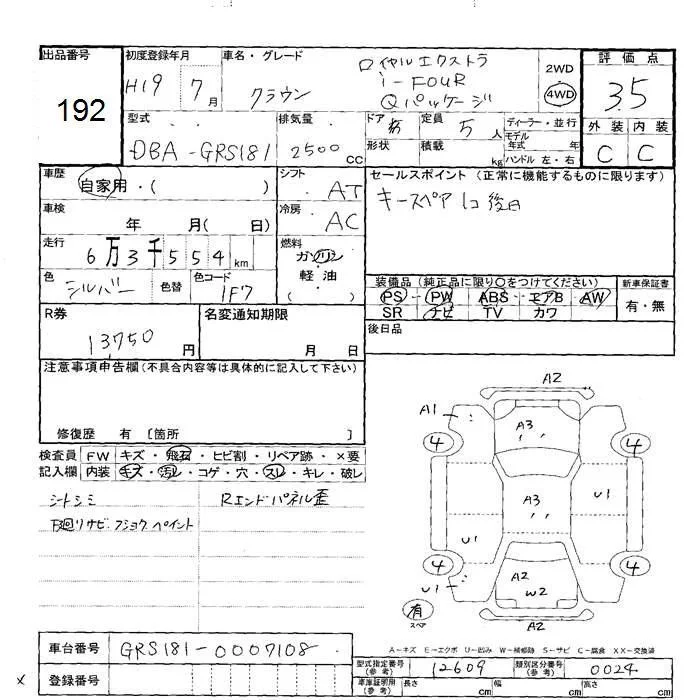 出品番号 初度登録年月 車名・グレード 評価点
192
H19 7月
クラウン
ロイヤルエクストラ
i-FOUR
Qパッケージ
2WD
4WD
3.5
外装 内装
C C
型式 排気量 ドア 定員 ディーラー・並行
DBA-GRS181 2500cc 5人 モデル年式 年
形状 積載 kg ハンドル 左・右
車歴 シフト セールスポイント (正常に機能するものに限ります)
自家用・( ) AT キースペア1コ後日
車検 冷房
年 月( 日) AC
走行 燃料
6万3千554km ガソリン
軽油
( )
色 色替 色コード
シルバー 1F7
装備品 (純正品に限り○をつけてください) 新車保証書
PS - PW ABS - エアB AW 有・無
SR ナビ TV カワ
R券 名変通知期限 後日品
13750円 月 日
注意事項申告欄 (不具合内容等は具体的に記入して下さい)
修復歴 有 〔箇所 〕
検査員 FW キズ・飛石・ヒビ割・リペア跡・×要
記入欄 内装 キズ・汚レ・コゲ・穴・スレ・キレ・破レ
シートシミ Rエンドパネル歪
下廻リサビ・フショク ペイント
A2
A1
A3
4 4
A3
U1
U1
4 4
A2
W2
U1
有
スペア
A2
A-キズ E-エクボ U-凹み W-補修跡 S-サビ C-腐食 XX-交換済
車台番号 GRS181-0007108
型式指定番号(参考) 12609 類別区分番号(参考) 0024
登録番号
車庫証明用(参考) 長さ cm 幅 cm 高さ cm
x